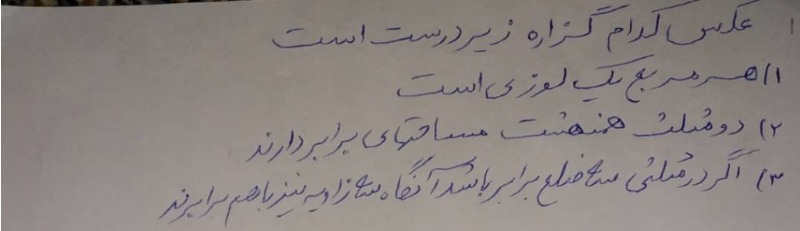 عکس کدام گزاره زیر درست است
۱) هر مربع یک لوزی است
۲) دو مثلث همنهشت مساحتهای برابر دارند
۳) اگر در مثلثی سه ضلع برابر باشد آنگاه سه زاویه نیز باهم برابرند